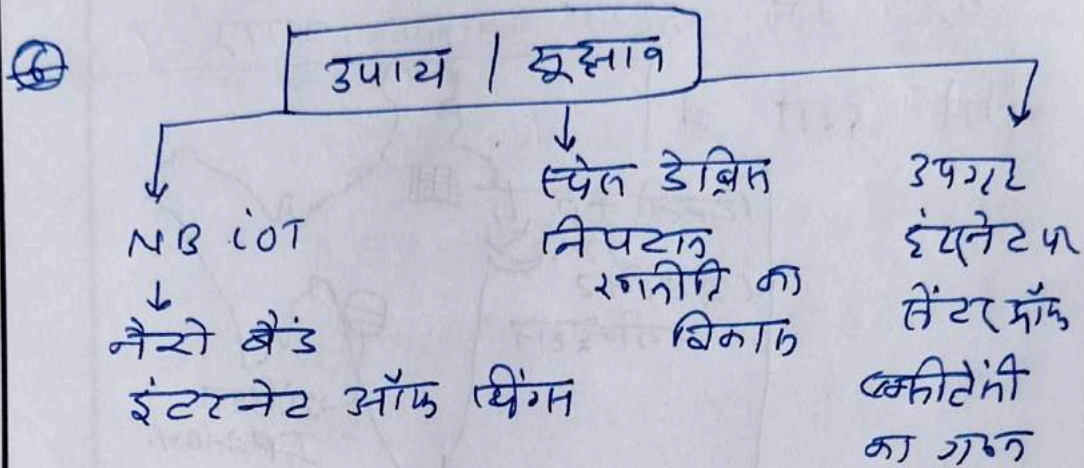 6
उपाय / सूझाव
NB iOT
नैरो बैंड
इंटरनेट ऑफ थिंग्स
स्पेस डेब्रिस
निपटान
रणनीति का
विकास
उपग्रह
इंटरनेट पर
सेंटर ऑफ
एक्सीलेंसी
का गठन